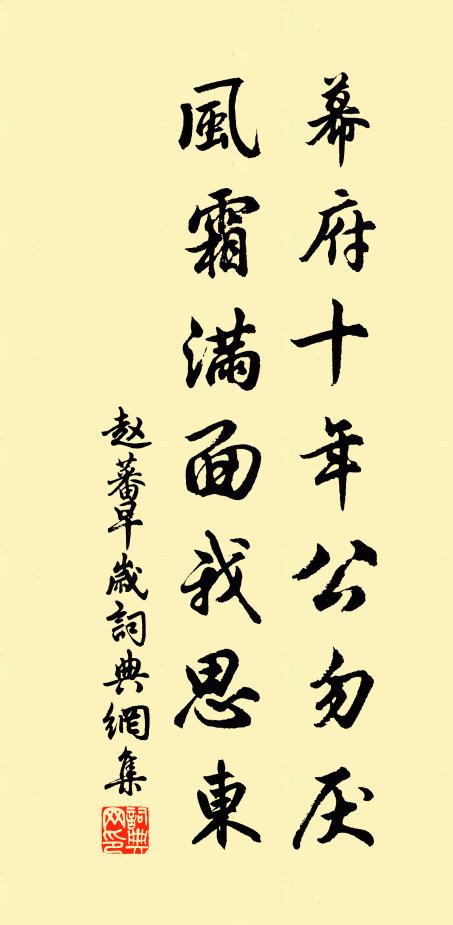 幕府十年公勿厌
風霜满面我思東
赵蕃早歲詞典網集
詞典网印